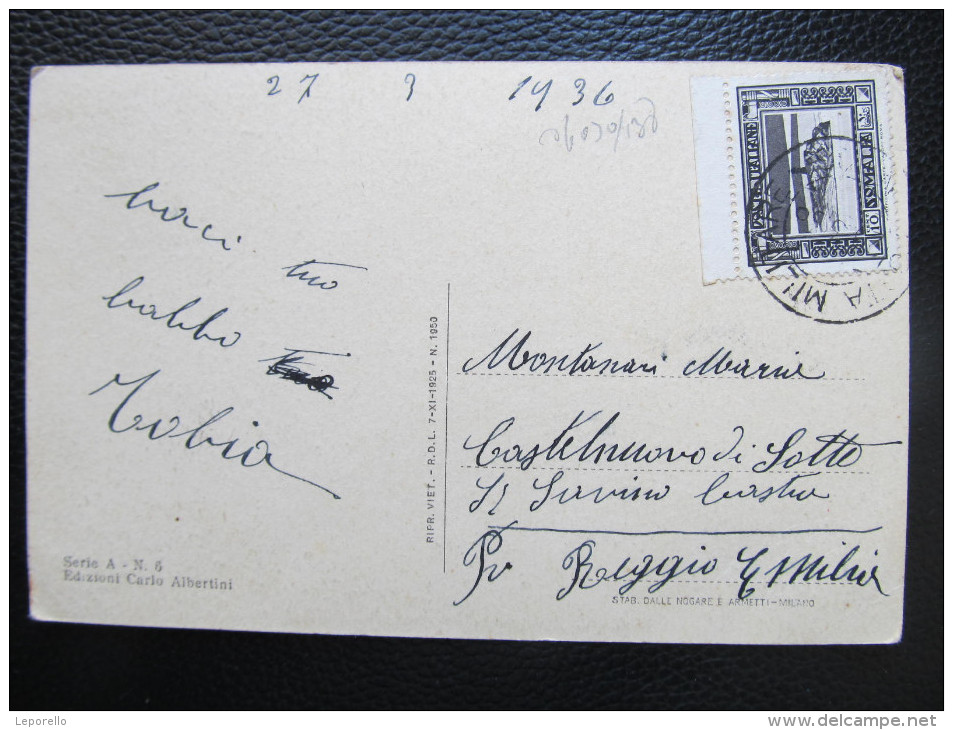 27 3 1936
POSTE ITALIANE
SOMALIA
10
baci
tuo
babbo
Tobia
Montanari Maria
Castelnuovo di Sotto
S Savino Castro
Pr Reggio Emilia
RIPR. VIET. - R.D.L. 7-XI-1925 - N. 1950
Serie A - N. 6
Edizioni Carlo Albertini
STAB. DALLE NOGARE E ARMETTI-MILANO
Leporello
http://www.delcampe.net